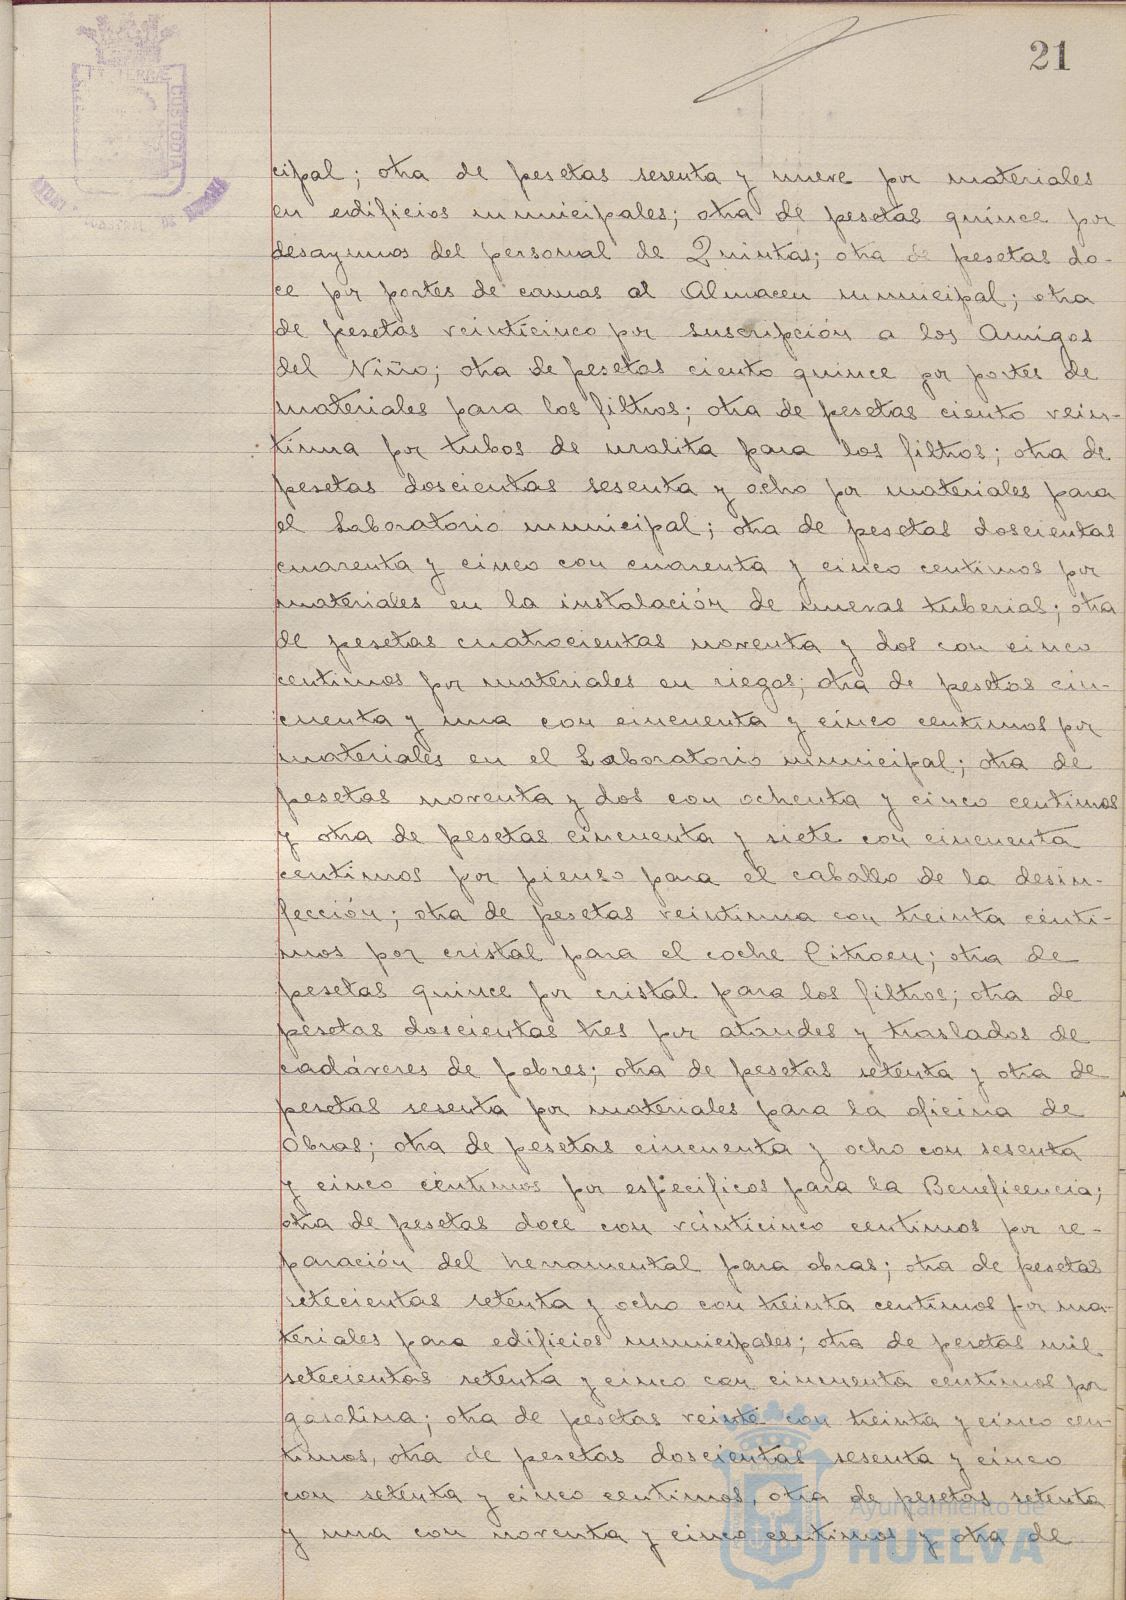 21
cipal; otra de pesetas sesenta y nueve por materiales
en edificios municipales; otra de pesetas quince por
desayunos del personal de Quintas; otra de pesetas do-
ce por portes de camas al Almacen municipal; otra
de pesetas veinticinco por suscripción a los Amigos
del Niño; otra de pesetas ciento quince por portes de
materiales para los filtros; otra de pesetas ciento vein-
tiuna por tubos de uralita para los filtros; otra de
pesetas doscientas sesenta y ocho por materiales para
el Laboratorio municipal; otra de pesetas doscientas
cuarenta y cinco con cuarenta y cinco centimos por
materiales en la instalación de nuevas tuberias; otra
de pesetas cuatrocientas noventa y dos con cinco
centimos por materiales en riegos; otra de pesetas cin-
cuenta y una con cincuenta y cinco centimos por
materiales en el Laboratorio municipal; otra de
pesetas noventa y dos con ochenta y cinco centimos
y otra de pesetas cincuenta y siete con cincuenta
centimos por pienso para el caballo de la desin-
fección; otra de pesetas veintiuna con treinta cénti-
mos por cristal para el coche Citroen; otra de
pesetas quince por cristal para los filtros; otra de
pesetas doscientas tres por ataudes y traslados de
cadáveres de pobres; otra de pesetas setenta y otra de
pesetas sesenta por materiales para la oficina de
Obras; otra de pesetas cincuenta y ocho con sesenta
y cinco céntimos por especificos para la Beneficencia;
otra de pesetas doce con veinticinco centimos por re-
paración del herramental para obras; otra de pesetas
setecientas setenta y ocho con treinta centimos por ma-
teriales para edificios municipales; otra de pesetas mil
setecientas setenta y cinco con cincuenta centimos por
gasolina; otra de pesetas veinte con treinta y cinco cen-
timos, otra de pesetas doscientas sesenta y cinco
con setenta y cinco centimos, otra de pesetas setenta
y una con noventa y cinco centimos y otra de
Ayuntamiento de
HUELVA